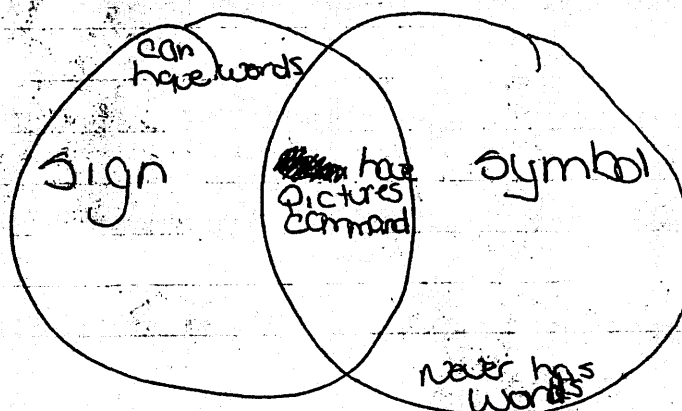 can
have words
sign
have
pictures
command
symbol
Never has
words